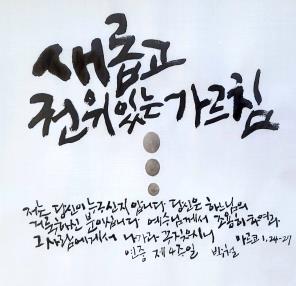 새롭고
권위있는 가르침
저는 당신이 누구신지 압니다 당신은 하느님의
거룩하신 분이십니다 예수님께서 조용히 하여라
그 사람에게서 나가라 꾸짖으시니 마르코 1.24-27
연중 제4주일